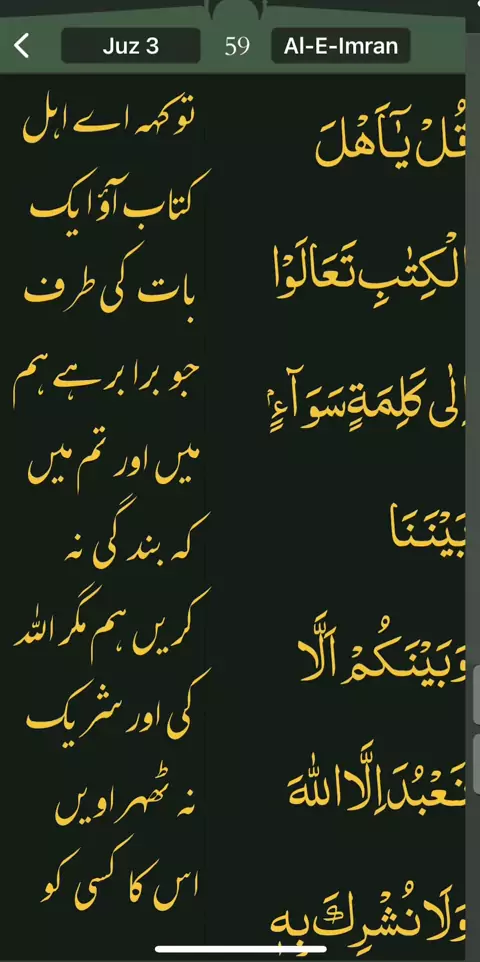 Juz 3 59 Al-E-Imran
قُلْ يٰٓاَهْلَ
الْكِتٰبِ تَعَالَوْا
اِلٰى كَلِمَةٍ سَوَآءٍۢ
بَيْنَنَا
وَبَيْنَكُمْ اَلَّا
نَعْبُدَ اِلَّا اللّٰهَ
وَلَا نُشْرِكَ بِهٖ
تو کہہ اے اہل
کتاب آؤ ایک
بات کی طرف
جو برابر ہے ہم
میں اور تم میں
کہ بندگی نہ
کریں ہم مگر اللہ
کی اور شریک
نہ ٹھہراویں
اس کا کسی کو